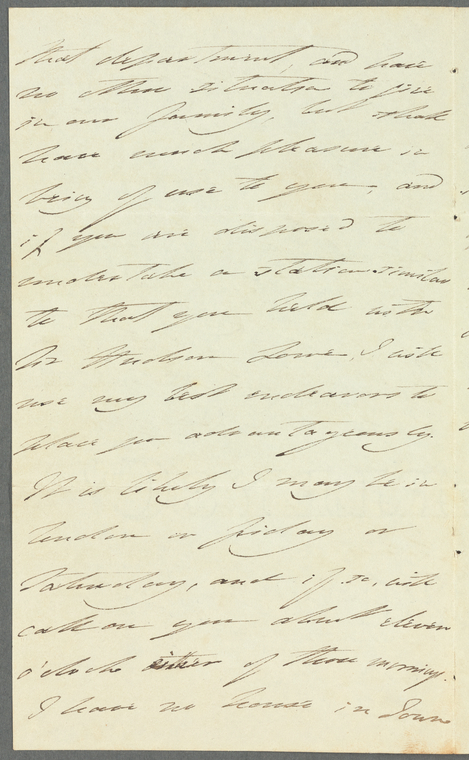 that department, and have
no other situation to give
in our family, but shall
have much pleasure in
being of use to you, and
if you are disposed to
undertake a station similar
to that you held with
Sir Hudson Lowe, I will
use my best endeavors to
place you advantageously.
It is likely I may be in
London on friday or
Saturday, and if so, will
call on you about eleven
o'clock either of those mornings.
I have no house in Town